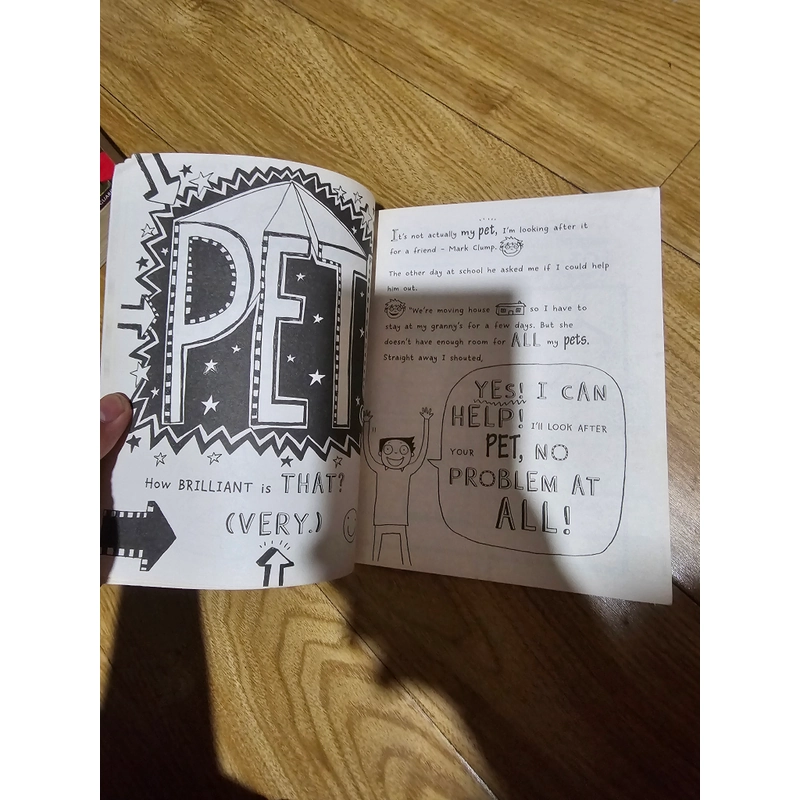 PET
How BRILLIANT is THAT?
(VERY.)
It's not actually my pet, I'm looking after it
for a friend – Mark Clump.
The other day at school he asked me if I could help
him out.
"We're moving house so I have to
stay at my granny's for a few days. But she
doesn't have enough room for ALL my pets.
Straight away I shouted,
YES! I CAN
HELP! I'LL LOOK AFTER
YOUR PET, NO
PROBLEM AT
ALL!